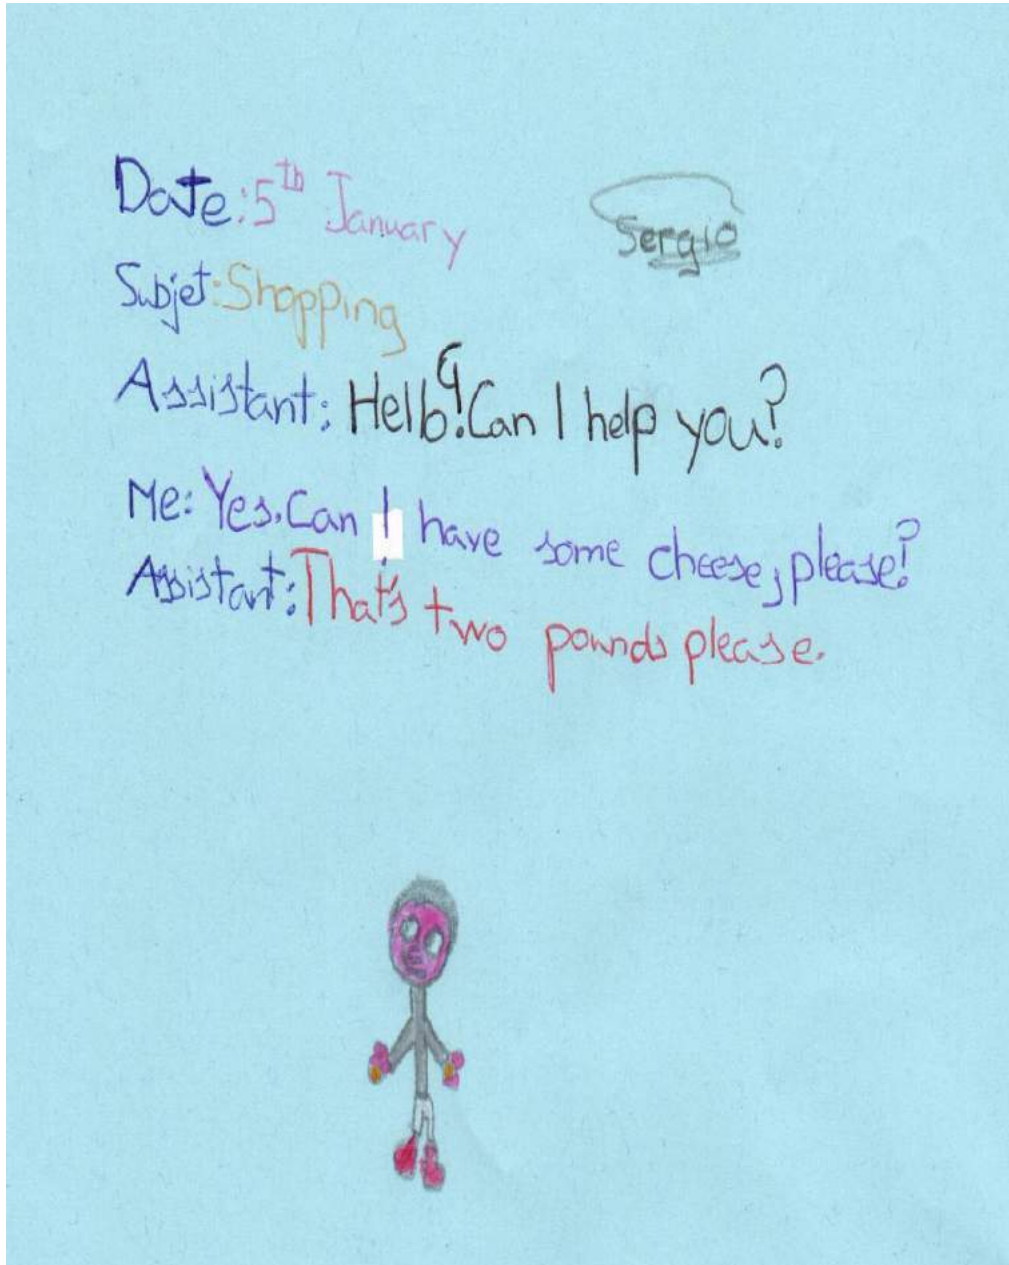 Date: 5th January
Sergio
Subjet: Shopping
Assistant: Hello! Can I help you?
Me: Yes. Can I have some cheese, please?
Assistant: That's two pounds please.